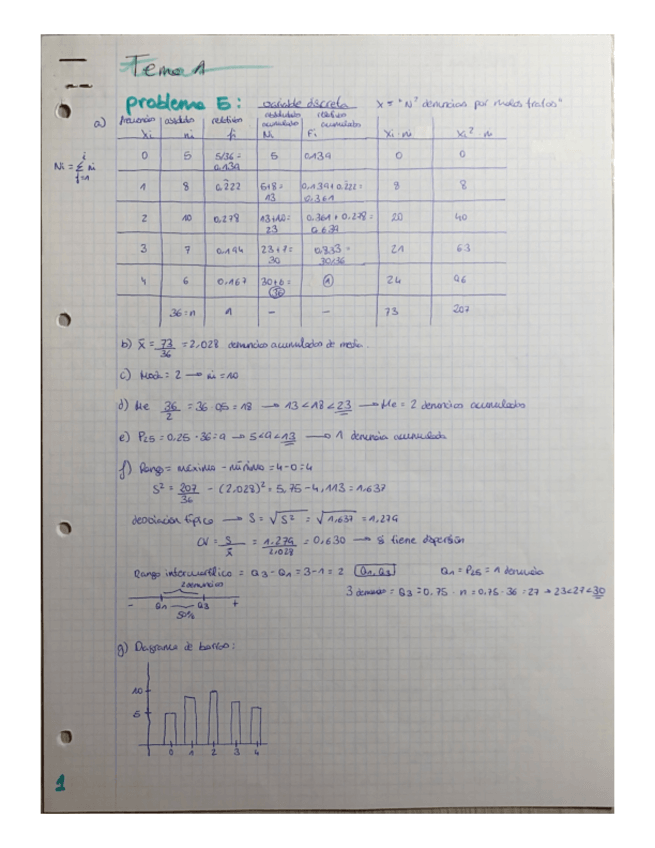 Tema 1
problema 5: variable discreta x = "Nº denuncias por malos tratos"
a) frecuencias absolutas relativas absolutas acumuladas relativas acumuladas
xi ni fi Ni Fi xi·ni xi²·ni
Ni = Σ ni
0 5 5/36 = 0,139 5 0,139 0 0
1 8 0,222 5+8 = 13 0,139+0,222 = 0,361 8 8
2 10 0,278 13+10 = 23 0,361+0,278 = 0,639 20 40
3 7 0,194 23+7 = 30 0,833 = 30/36 21 63
4 6 0,167 30+6 = 36 1 24 96
36 = n 1 - - 73 207
b) x̄ = 73/36 = 2,028 denuncias acumuladas de media.
c) Moda = 2 → ni = 10
d) Me 36/2 = 36·0,5 = 18 → 13<18<23 → Me = 2 denuncias acumuladas
e) P25 = 0,25·36 = 9 → 5<9<13 → 1 denuncia acumulada
f) Rango = máximo - mínimo = 4-0 = 4
S² = 207/36 - (2,028)² = 5,75 - 4,113 = 1,637
desviación típica → S = √S² = √1,637 = 1,279
CV = S/x̄ = 1,279/2,028 = 0,630 → si tiene dispersión
Rango intercuartílico = Q3 - Q1 = 3-1 = 2 [Q1, Q3] Q1 = P25 = 1 denuncia
2 denuncias
3 denuncias = Q3 = 0,75 · n = 0,75 · 36 = 27 → 23<27<30
- Q1 Q3 +
50%
g) Diagrama de barras:
10
5
0 1 2 3 4
1